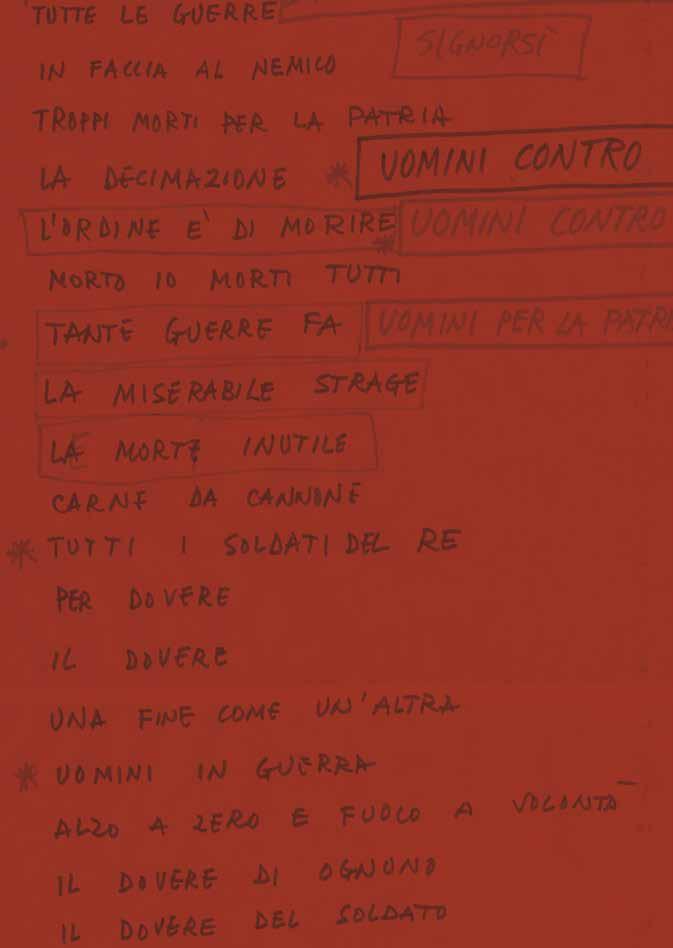 TUTTE LE GUERRE
SIGNORSÌ
IN FACCIA AL NEMICO
TROPPI MORTI PER LA PATRIA
LA DECIMAZIONE * UOMINI CONTRO
L'ORDINE E' DI MORIRE * UOMINI CONTRO
MORTO IO MORTI TUTTI
TANTE GUERRE FA UOMINI PER LA PATRI
LA MISERABILE STRAGE
LA MORTE INUTILE
CARNE DA CANNONE
* TUTTI I SOLDATI DEL RE
PER DOVERE
IL DOVERE
UNA FINE COME UN'ALTRA
* UOMINI IN GUERRA
ALZO A ZERO E FUOCO A VOLONTÀ
IL DOVERE DI OGNUNO
IL DOVERE DEL SOLDATO